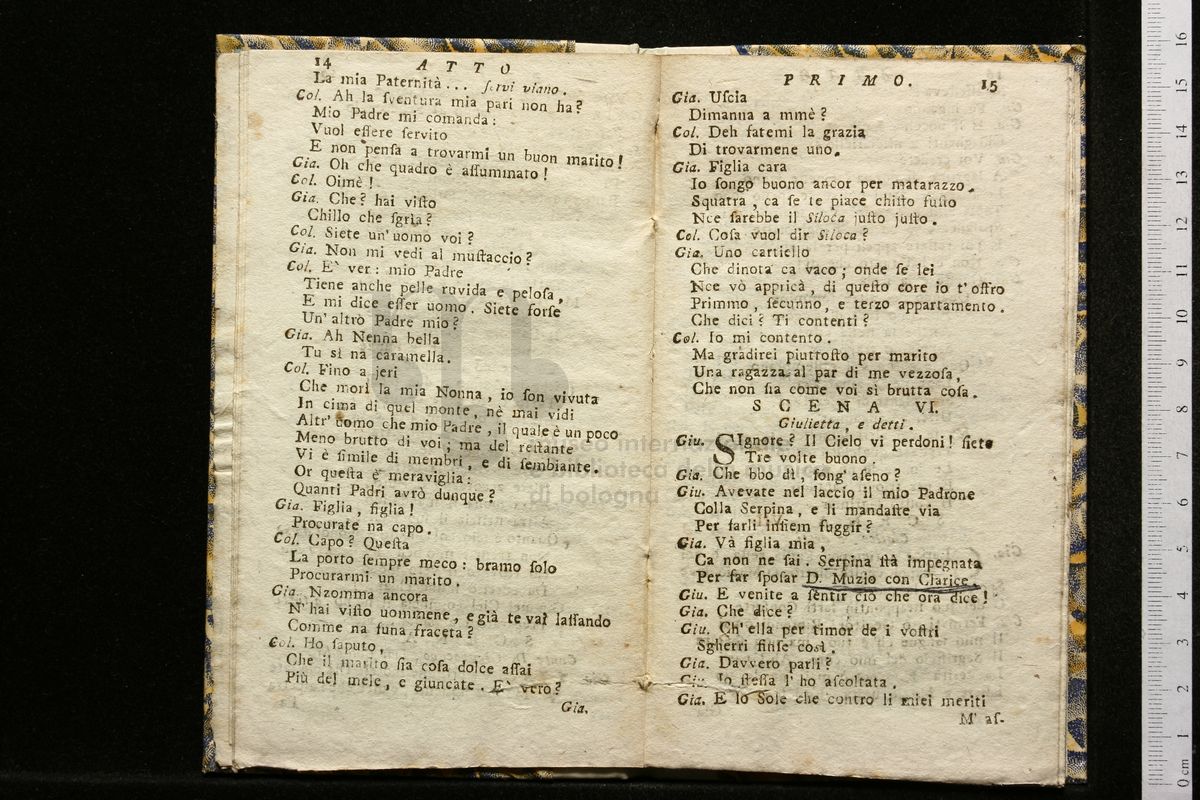 14 ATTO
La mia Paternità ... servi viano.
Col. Ah la sventura mia pari non ha?
Mio Padre mi comanda:
Vuol essere servito
E non pensa a trovarmi un buon marito!
Gia. Oh che quadro è assummato!
Col. Oimè!
Gia. Che? hai visto
Chillo che sgrìa?
Col. Siete un' uomo voi?
Gia. Non mi vedi al mustaccio?
Col. E' ver: mio Padre
Tiene anche pelle ruvida e pelosa,
E mi dice esser uomo. Siete forse
Un' altrò Padre mio?
Gia. Ah Nenna bella
Tu si na caramella.
Col. Fino a jeri
Che morì la mia Nonna, io son vivuta
In cima di quel monte, nè mai vidi
Altr' uomo che mio Padre, il quale è un poco
Meno brutto di voi; ma del restante
Vi è simile di membri, e di sembiante.
Or questa è meraviglia:
Quanti Padri avrò dunque?
Gia. Figlia, figlia!
Procurate na capo.
Col. Capo? Questa
La porto sempre meco: bramo solo
Procurarmi un marito.
Gia. Nzomma ancora
N' hai visto uommene, e già te vai lassando
Comme na funa fraceta?
Col. Ho saputo,
Che il marito sia cosa dolce assai
Più del mele, e giuncate. E' vero?
Gia.
PRIMO. 15
Gia. Uscia
Dimanna a mmè?
Col. Deh fatemi la grazia
Di trovarmene uno.
Gia. Figlia cara
Io songo buono ancor per matarazzo.
Squatra, ca se te piace chisto fusto
Nce sarebbe il Siloca justo justo.
Col. Cosa vuol dir Siloca?
Gia. Uno cartiello
Che dinota ca vaco; onde se lei
Nce vò appricà, di questo core io t' offro
Primmo, secunno, e terzo appartamento.
Che dici? Ti contenti?
Col. Io mi contento.
Ma gradirei piuttosto per marito
Una ragazza al par di me vezzosa,
Che non sia come voi sì brutta cosa.
SCENA VI.
Giulietta, e detti.
Giu. SIgnore? Il Cielo vi perdoni! siete
Tre volte buono.
Gia. Che bbo dì, song' aseno?
Giu. Avevate nel laccio il mio Padrone
Colla Serpina, e li mandaste via
Per farli insiem fuggir?
Gia. Và figlia mia,
Ca non ne sai. Serpina stà impegnata
Per far sposar D. Muzio con Clarice.
Giu. E venite a sentir ciò che ora dice!
Gia. Che dice?
Giu. Ch' ella per timor de i vostri
Sgherri finse così.
Gia. Davvero parli?
Giu. Io stessa l' ho ascoltata.
Gia. E lo Sole che contro li miei meriti
M' as-
museo internazionale
e biblioteca della musica
di bologna